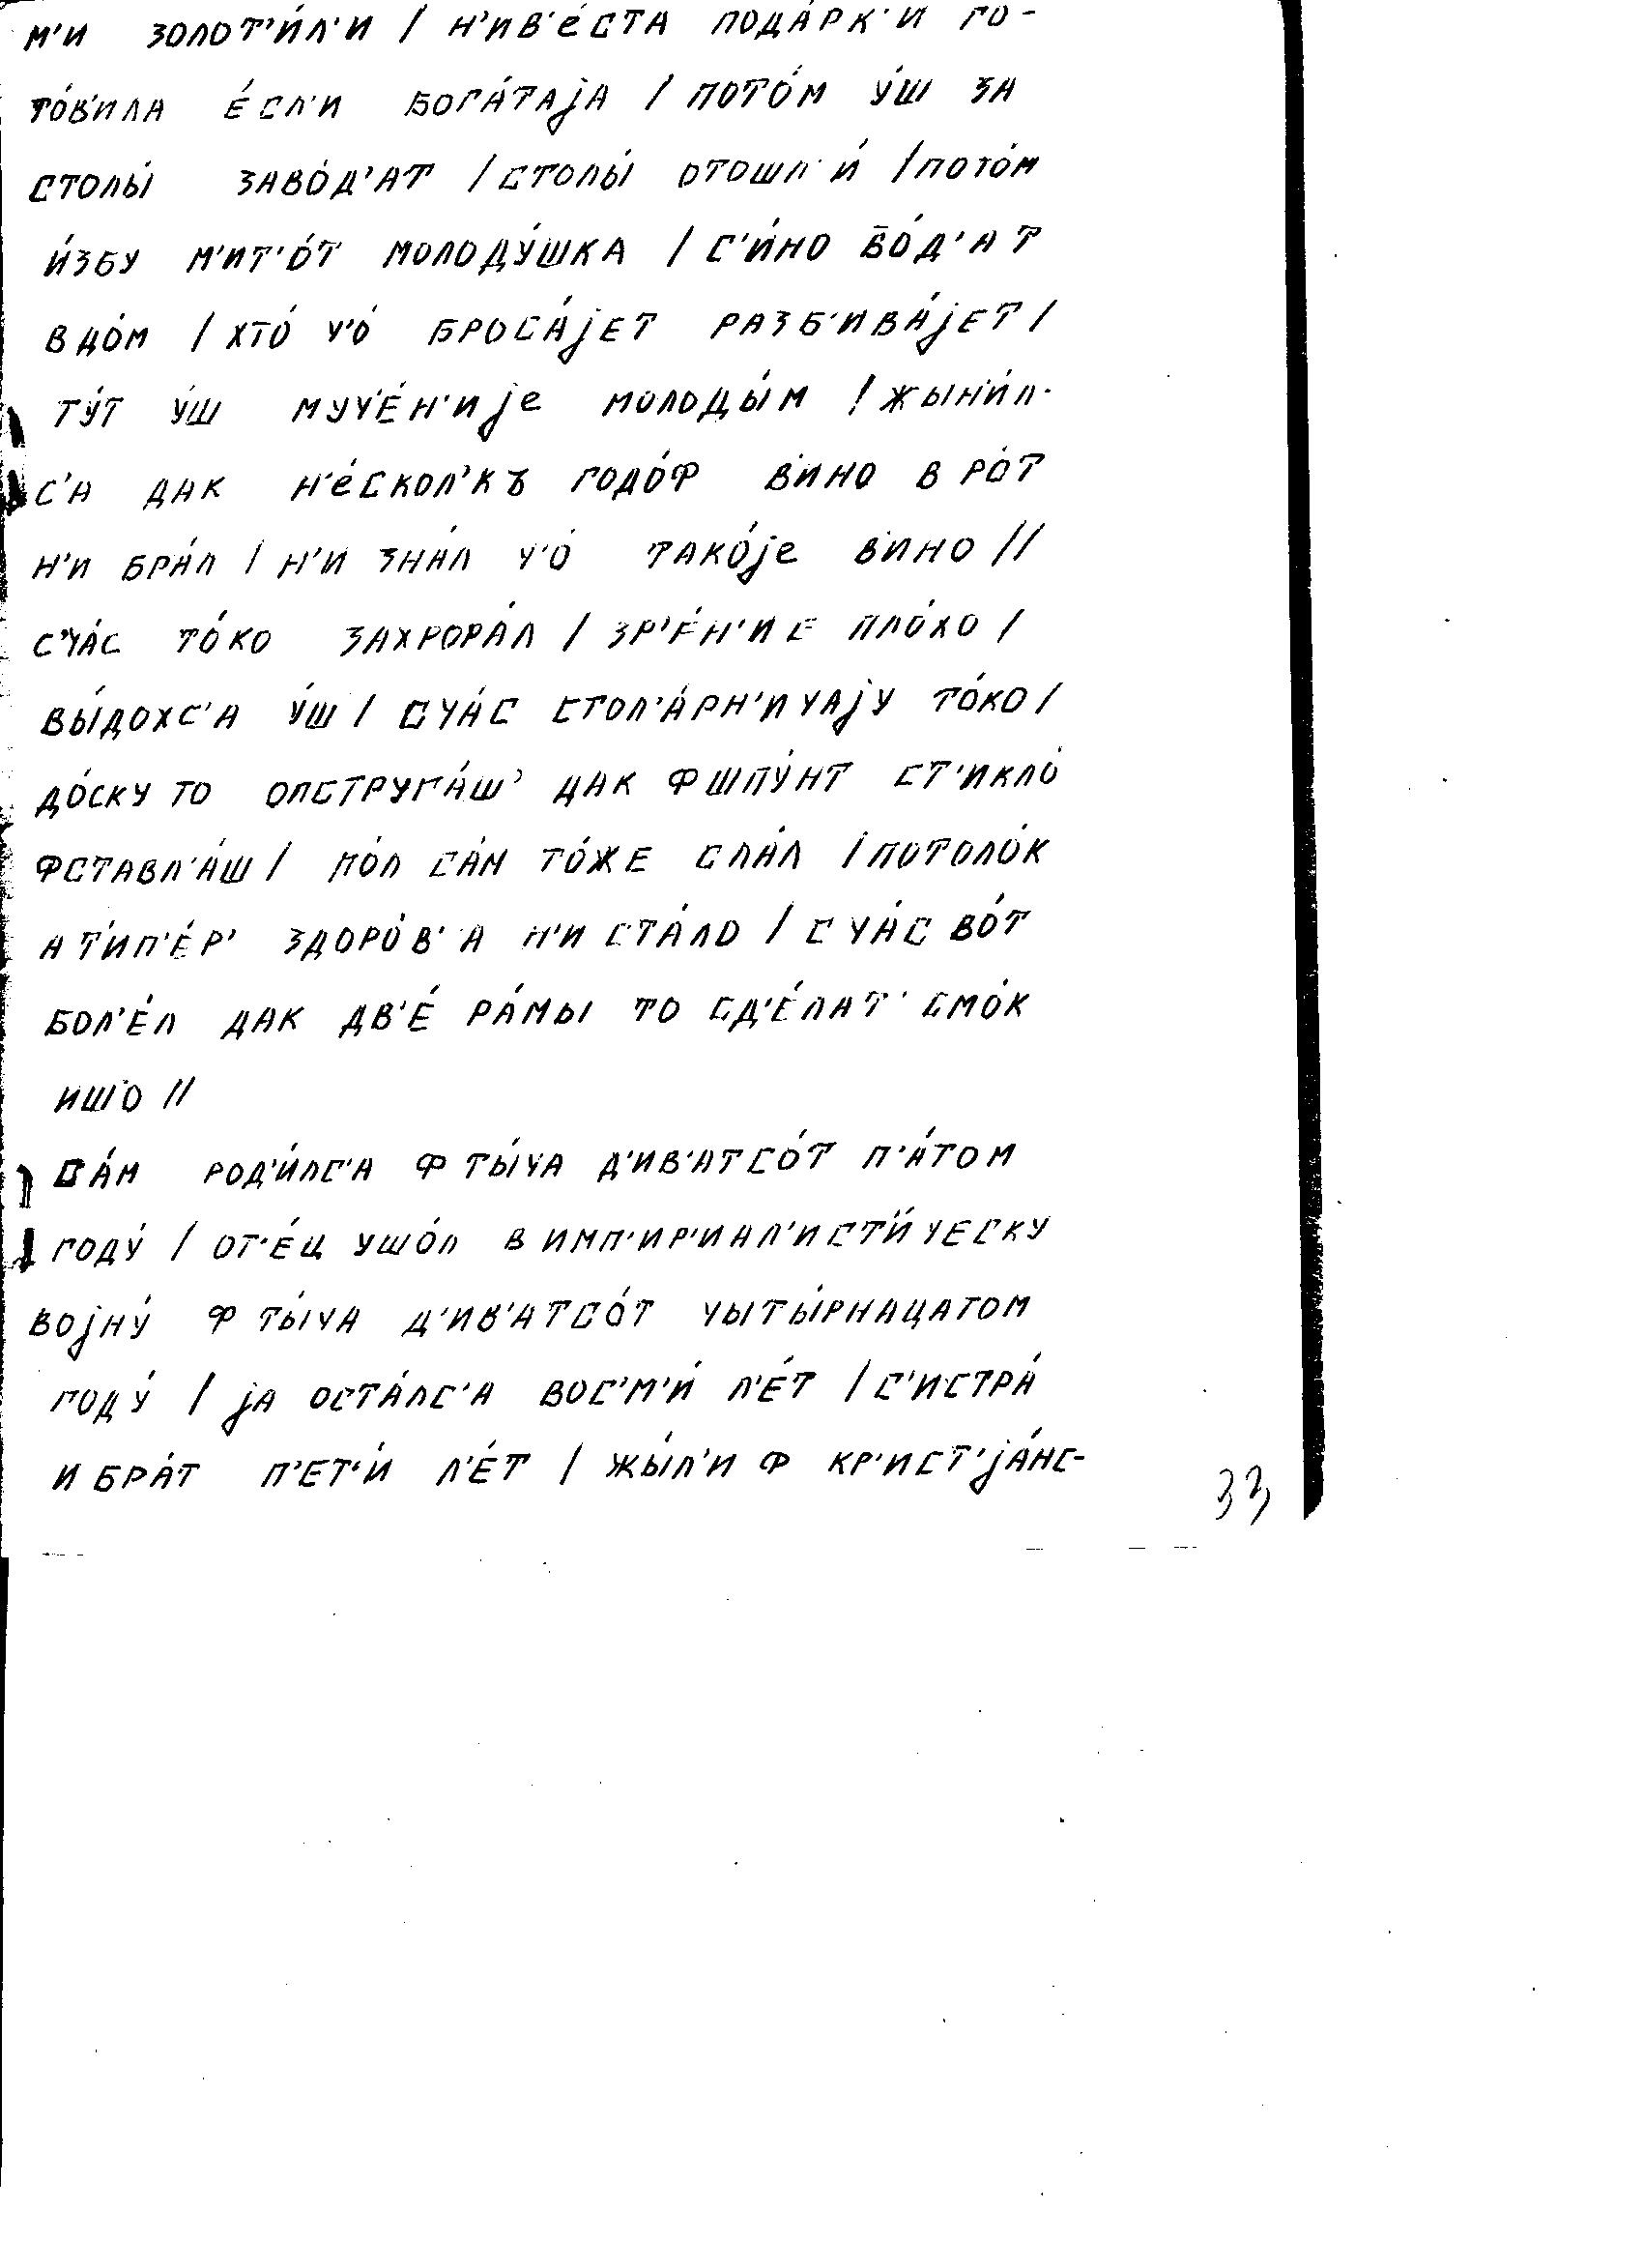 м'и золот'и́л'и / н'ив'е́ста пода́рк'и го-
то́в'ила е́сл'и бога́таjа / пото́м у́ш за
столы́ заво́д'ат / столы́ отошл'и́ / пото́м
и́збу м'ит'о́т молоду́шка / с'и́но во́д'ат
в до́м / хто́ ч'о́ броса́jет разб'ива́jет /
ту́т у́ш муче́н'иjе молоды́м / жын'и́л-
с'а дак н'е́скол'къ годо́ф в'ино в ро́т
н'и бра́л / н'и зна́л ч'о́ тако́jе в'ино //
сча́с то́ко захрора́л / зр'е́н'ие пло́хо /
вы́дохс'а у́ш / сча́с стол'а́рн'ичаjу то́ко /
до́ску то опструга́ш' дак ф шпу́нт ст'икло́
фставл'а́ш / по́л са́м то́же слал / потоло́к
а т'ип'е́р' здоро́в'а н'и ста́ло / сча́с во́т
бол'е́л дак дв'е́ ра́мы то сд'е́лат' смо́к
ишо //
са́м род'и́лс'а ф ты́ча д'ив'атсо́т п'а́том
году́ / от'е́ц ушо́л в имп'ир'иал'ист'и́ческу
воjну́ ф ты́ча д'ив'атсо́т чыты́рнацатом
году́ / jа оста́лс'а вос'м'и́ л'е́т / с'истра́
и бра́т п'ет'и́ л'е́т / жы́л'и ф кр'ист'jа́нс-
33